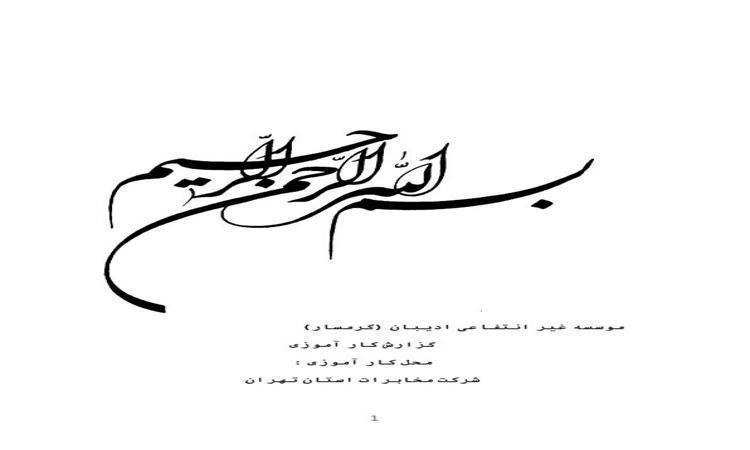 بسم الله الرحمن الرحیم
موسسه غیر انتفاعی ادیبان (گرمسار)
گزارش کار آموزی
محل کار آموزی :
شرکت مخابرات استان تهران
1